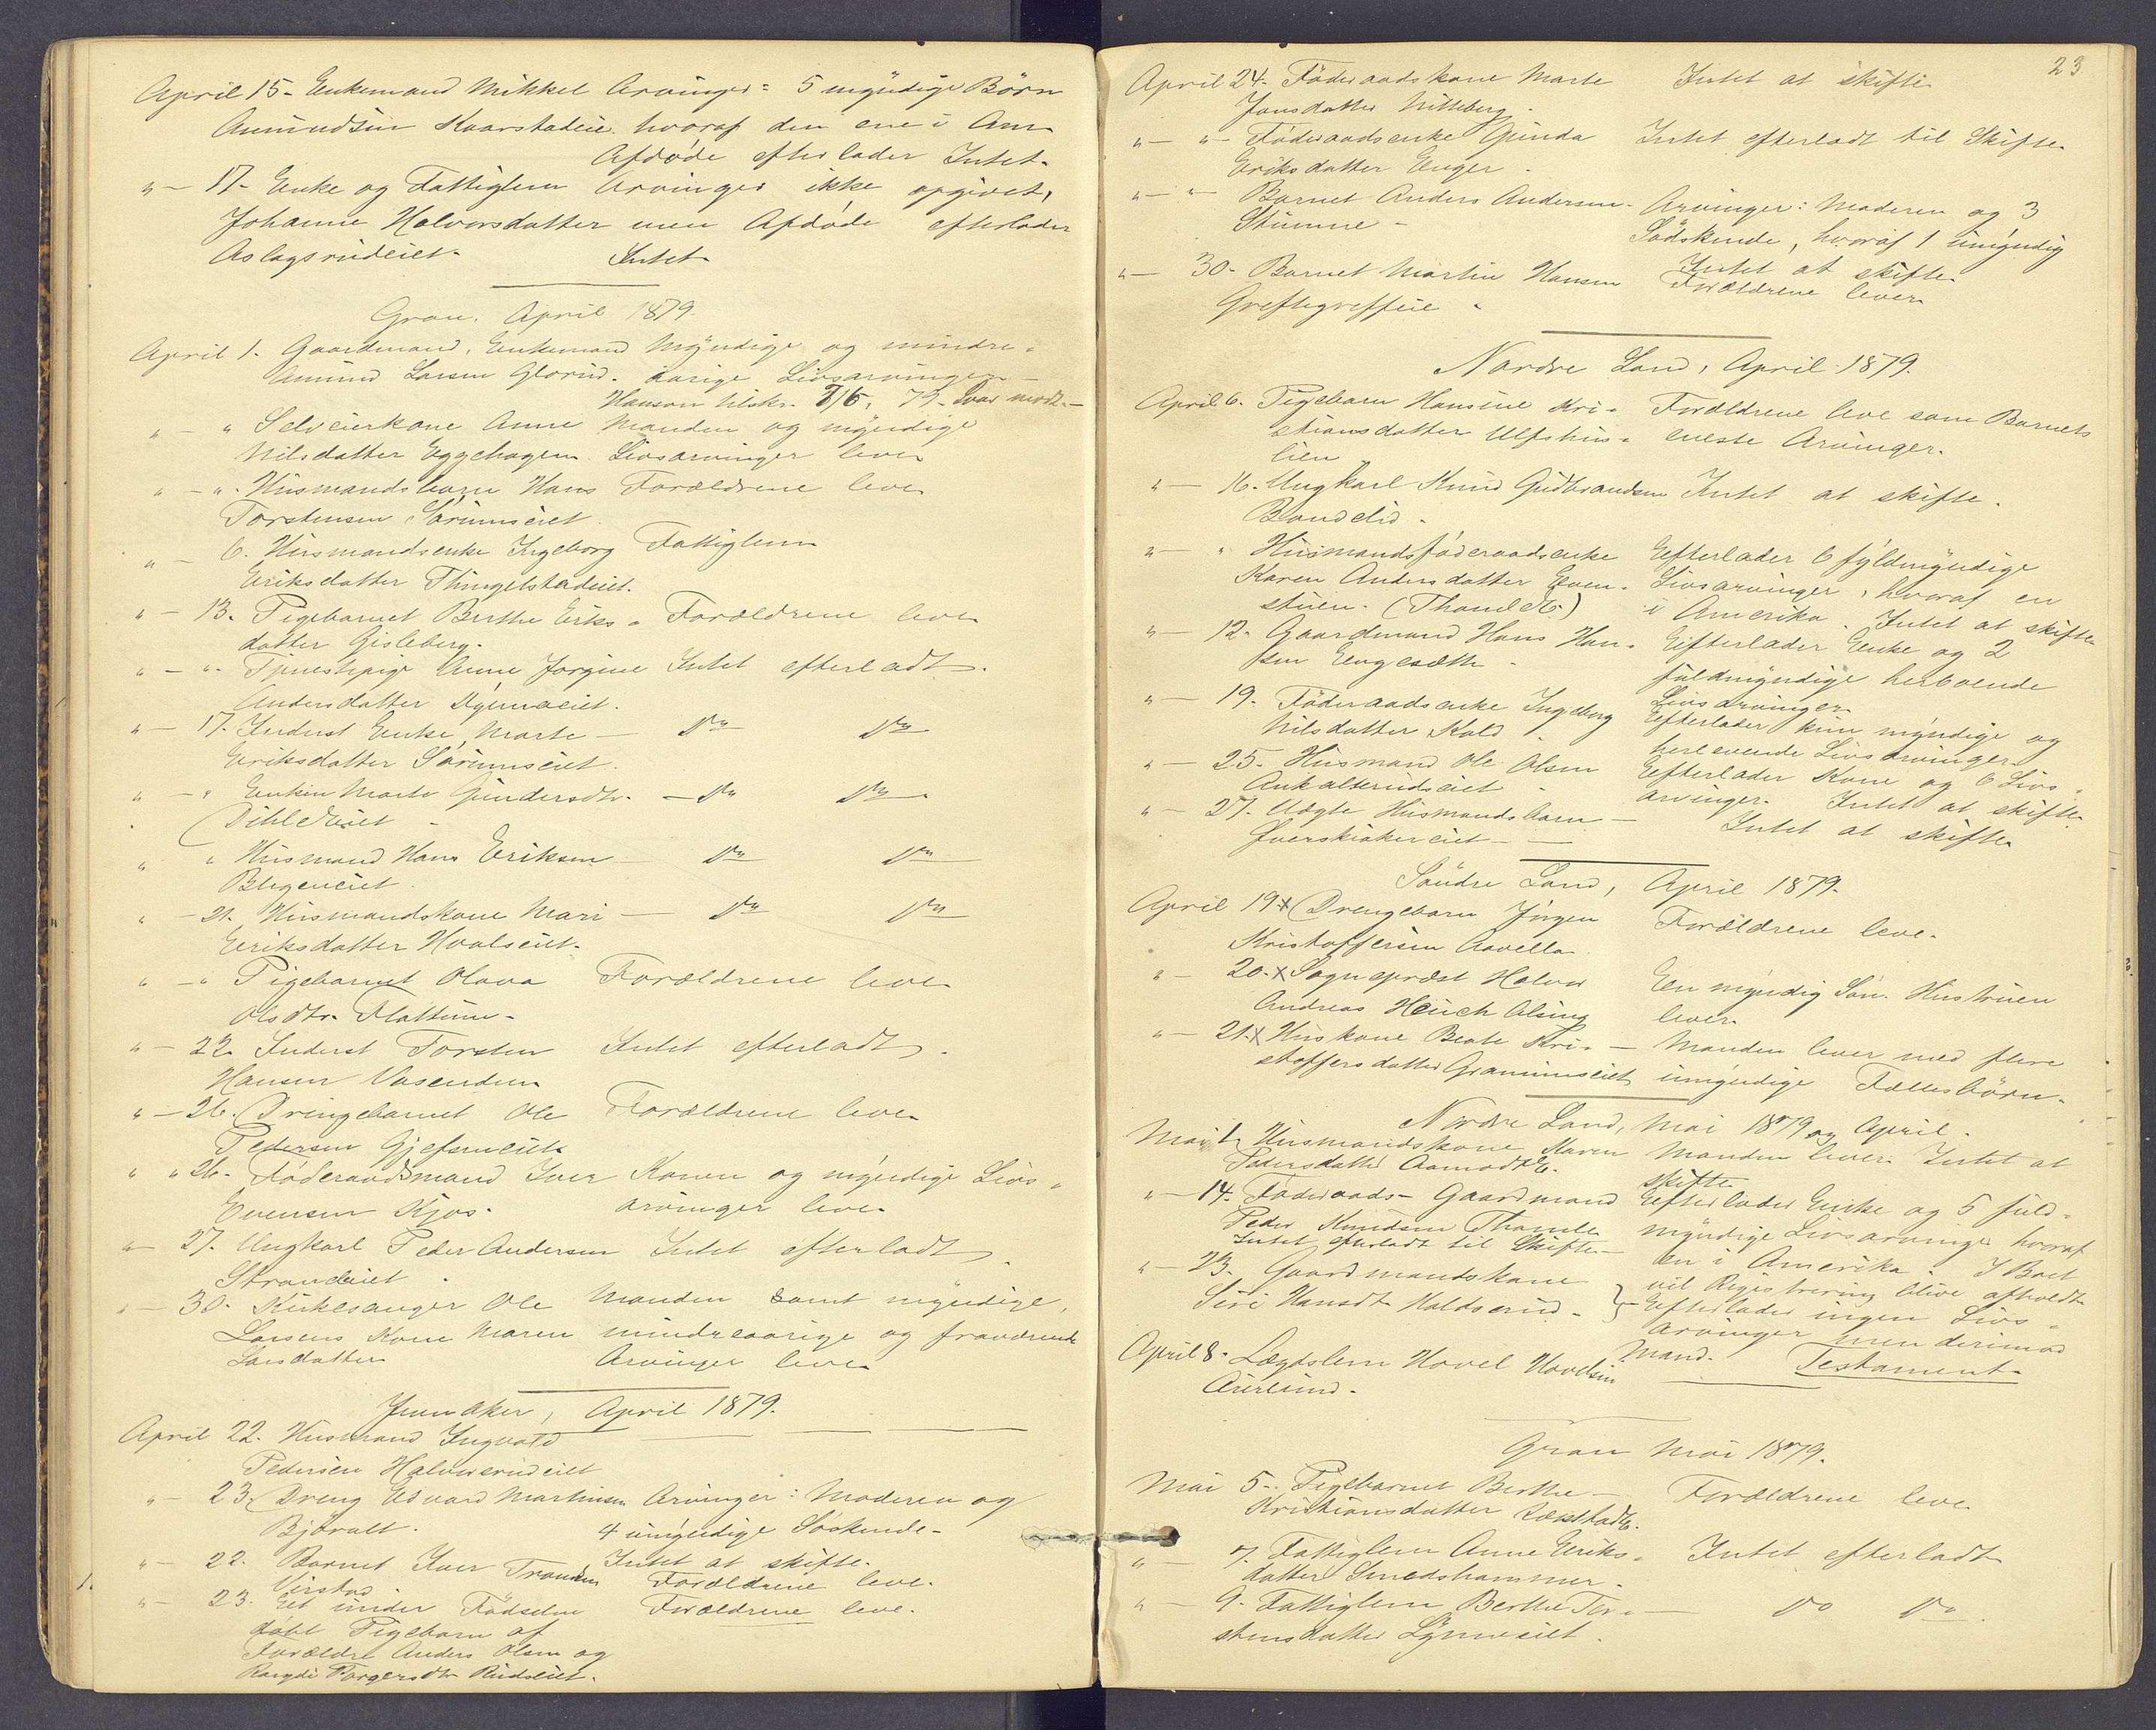 April 15- Enkemand Mikkel Arvinger: 5 myndige Börn
Amundsen Kaarstadeie. hvoraf den ene i Am.
Afdøde efterlader Intet.
" — 17- Enke og Fattiglem Arvinger ikke opgivet,
Johanne Halvorsdatter men Afdøde efterlader
Aslagsrudeiet. Intet.
Gran. April 1879.
April 1. Gaardmand, Enkemand Myndige og mindre-
Amund Larsen Glorud. aarige Livsarvinger —
Hansen tilskr. 7/5, 79. Svar modt. —
" — " Selveierkone Anne Manden og myndige
Nilsdatter Eggehagen. Livsarvinger lever
" — ". Husmandsbarn Hans Forældrene lever
Torstensen Sørumseiet.
" — 6. Husmandsenke Ingeborg Fattiglem
Eriksdatter Thingelstadeiet.
" — 13. Pigebarnet Berthe Eriks- Forældrene lever
datter Gisleberg.
" — ". Tjenestepige Anne Jorgine Intet efterladt.
Andersdatter
" — 17. Inderst Enke, Marte — Do Do
Eriksdatter Sørumseiet.
" — " Enken Marte Gundersdtr. — Do Do.
" " Husmand Hans Eriksen — Do Do
" — 21. Husmandskone Mari — Do Do
Eriksdatter Hvalseiet.
" — " Pigebarnet Olava Forældrene lever
Olsdtr. Flattum.
" — 22. Inderst Torsten Intet efterladt.
Hansen Vasenden
" — 26. Drengebarnet Ole Forældrene lever
Pedersen
" " 26. Føderaadsmand Iver Konen og myndige Livs-
Evensen Kjos. arvinger lever
" — 27. Ungkarl Peder Andersen Intet efterladt.
Strandeiet.
" — 30. Kirkesanger Ole Manden samt myndige,
Larsens Kone Maren mindreaarige og fraværende
Larsdatter Arvinger lever
Jevnaker, April 1879.
April 22. Husmand Ingvald
Pedersen Halvorsrudeiet
" — 23. Dreng Edvard Martinsen Arvinger: Moderen og
Björalt. 4 umyndige Söskende -
Intet at skifte.
" — 22. Barnet Iver Forældrene lever.
" — 23. Et under Födselen Forældrene lever.
dödt Pigebarn af
Forældre Anders Olsen og
Torgersdtr. Rudseiet.
23
April 24. Föderaadskone Marte Intet at skifte
Jonsdatter Hilleberg.
" — " — Föderaadsenke Gunda Intet efterladt til Skifte
Eriksdatter Enger.
" — " Barnet Anders Andersen Arvinger: Moderen og 3
Stumne - Södskende, hvoraf 1 umyndig
Intet at skifte
" — 30- Barnet Martin Hansen Forældrene lever
Greftegreffeie.
Nordre Land, April 1879.
April 6. Pigebarn Hansine Kri- Forældrene leve som Barnets
stiansdatter Ulfshus- eneste Arvinger.
lien
" — 16. Ungkarl Knud Gudbrandsen Intet at skifte.
Bondelid.
" — " Husmandsföderaadsenke Efterlader 6 fyldmyndige
Karen Andersdatter Even- Livsarvinger, hvoraf en
stuen. (Thomle E.) i Amerika. Intet at skifte
" — 12. Gaardmand Hans Han- Efterlader Enke og 2
sen Engesætte - fuldmyndige herboende
Livsarvinger.
" — 19. Föderaadsenke Ingeborg Efterlader kun myndige og
Nilsdatter Kold. herlevende Livsarvinger.
" — 25. Husmand Ole Olsen Efterlader Kone og 6 Livs-
arvinger. Intet at skifte
" — 27. Uægte Husmandsbarn — Intet at skifte
Söndre Land, April 1879.
April 19 x Drengebarn Jörgen Forældrene leve.
Kristoffersen Aavella
" — 20. x Sogneprest Halvor En myndig Sön. Hustruen
Andreas Heuch Alsing lever.
" — 21. x Huskone Beate Kri- — Manden lever med flere
stoffersdatter Grammseiet umyndige Fællesbörn.
Nordre Land, Mai 1879 og April.
Mai 1. Husmandskone Karen Manden lever. Intet at
Pedersdatter Aamodt E. skifte
" — 14. Föderaads- Gaardmand Efterlader Enke og 5 fuld-
Peder Knudsen Thomle myndige Livsarvinger hvoraf
Intet efterladt til Skifte. — en i Amerika. I Boet
vil Registrering blive afholdt
" — 23. Gaardmandskone Efterlader ingen Livs-
Siri Hansdt. Haldsrud. arvinger men derimod
Mand. Testament.
April 8. Lægdslem Hovel Hovelsen
Aurlund.
Gran Mai 1879.
Mai 5. Pigebarnet Berthe — Forældrene leve
Kristiansdatter
" — 7. Fattiglem Anne Eriks- Intet efterladt
datter Smedshammer.
" — 9. Fattiglem Berthe Tor- — Do Do.
stensdatter Lynneeiet.